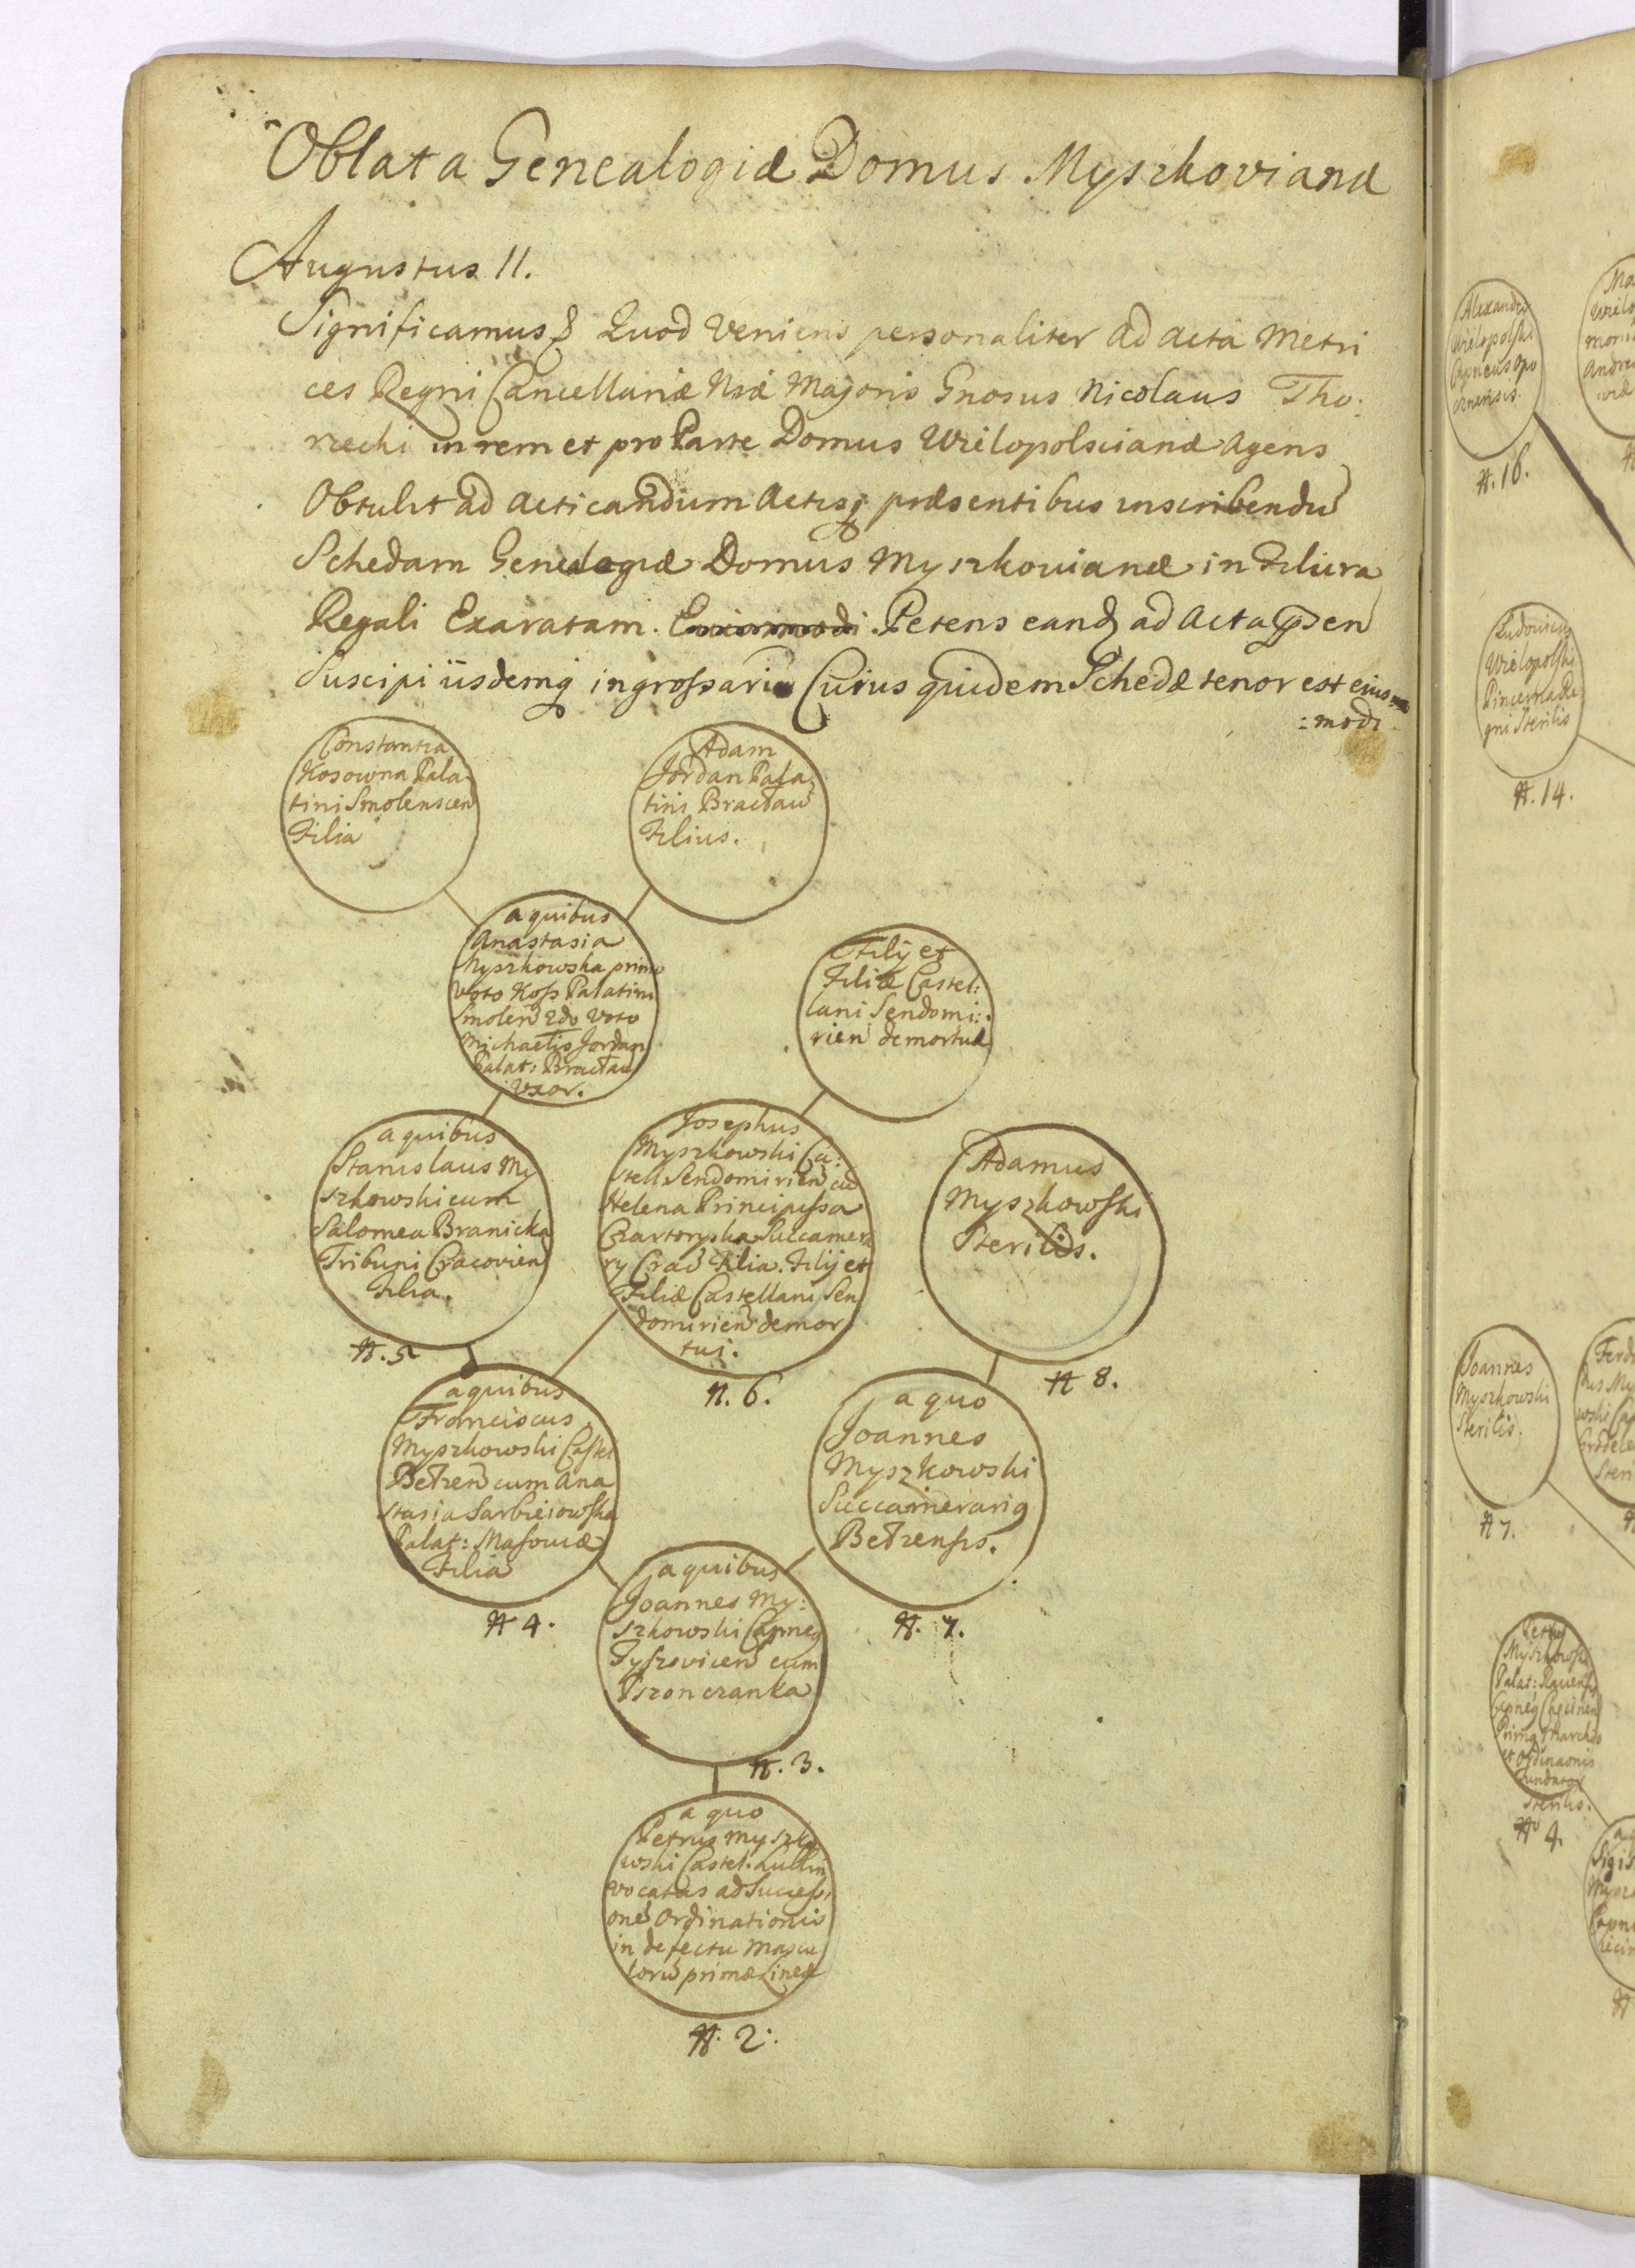 Oblata Genealogiæ Domus Myszkovianæ
Augustus II.
Significamus & Quod Veniens personaliter ad acta Metri
ces Regni Cancellariæ Nræ Majoris Gnosus Nicolaus Tho:
rzecki in rem et pro Parte Domus Wielopolscianæ Agens
Obtulit ad acticandum Actisq; præsentibus inscribendū
Schedam Genealogiæ Domus Myszkovianæ in Filura
Regali Exaratam. Petens eandē ad Acta pñsen
Suscipi iisdemq ingrossari Cuius quidem Schedæ tenor est eius=
=modi
Constantia
Kosowna Pala
tini Smolenscen
Filia
Adam
Jordan Pala
tini Bracław
Filius.
a quibus
Anastasia
Myszkowska primo
Voto Koss Palatini
Smolen 2do Voto
Michaelis Jordan
Palat: Bracław
Vxor.
Filij et
Filiæ Castel:
lani Sendomi:
rien demortuæ
a quibus
Stanislaus My
szkowski cum
Salomea Branicka
Tribuni Cracovien
Filia.
N. 5
Josephus
Myszkowski Ca:
stell Sendomirien cū
Helena Principissa
Czartoryska Succamera
ry Crac Filia. Filij et
Filiæ Castellani Sen
domirien demor
tui.
N. 6.
Adamus
Myszkowski
Sterilis.
N 8.
a quibus
Franciscus
Myszkowski Castel
Bełzen cum Ana
stasia Sarbieiowska
Palat: Masoviæ
Filia
N 4.
a quo
Joannes
Myszkowski
Succamerariq
Bełzensis.
N. 7.
a quibus
Joannes My:
szkowski Capneq
Tyszovicen cum
Pszonczanka
N. 3.
a quo
Petrus Myszko
wski Castel. Lublin
vocatus ad Success
onē Ordinationis
in defectu Mascu
lorū primæ Lineæ
N. 2.
Alexander
Wielopolski
N. 16.
Ludovicus
Wielopolski
Pincerna Re
gni Sterilis
N. 14.
Joannes
Myszkowski
Sterilis.
N 7.
Petrus
Myszkowski
Palat: Raven
Sterilis.
N 4.